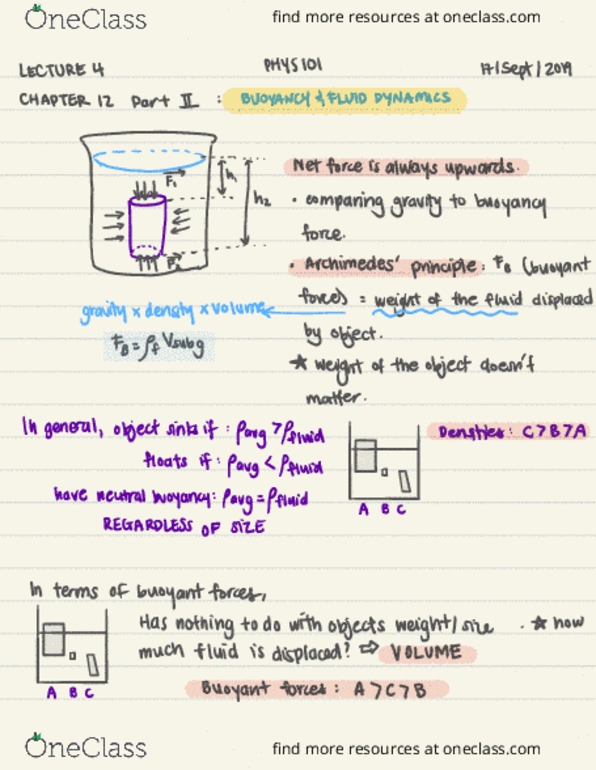 OneClass
find more resources at oneclass.com
LECTURE 4
PHYS 101
17/Sept/2019
CHAPTER 12 Part II : BUOYANCY & FLUID DYNAMICS
F₁
h₁
h₂
F₂
Net force is always upwards.
• comparing gravity to buoyancy
force.
• Archimedes' principle: FB (buoyant
force) = weight of the fluid displaced
by object.
★ weight of the object doesn't
matter.
gravity x density x volume
FB = ρf Vsub g
In general, object sinks if : ρavg > ρfluid
floats if : ρavg < ρfluid
have neutral buoyancy: ρavg = ρfluid
REGARDLESS OF SIZE
A B C
Densities: C > B > A
In terms of buoyant forces,
Has nothing to do with objects weight/size . ★ how
much fluid is displaced? ⇨ VOLUME
A B C
Buoyant forces: A > C > B
OneClass
find more resources at oneclass.com